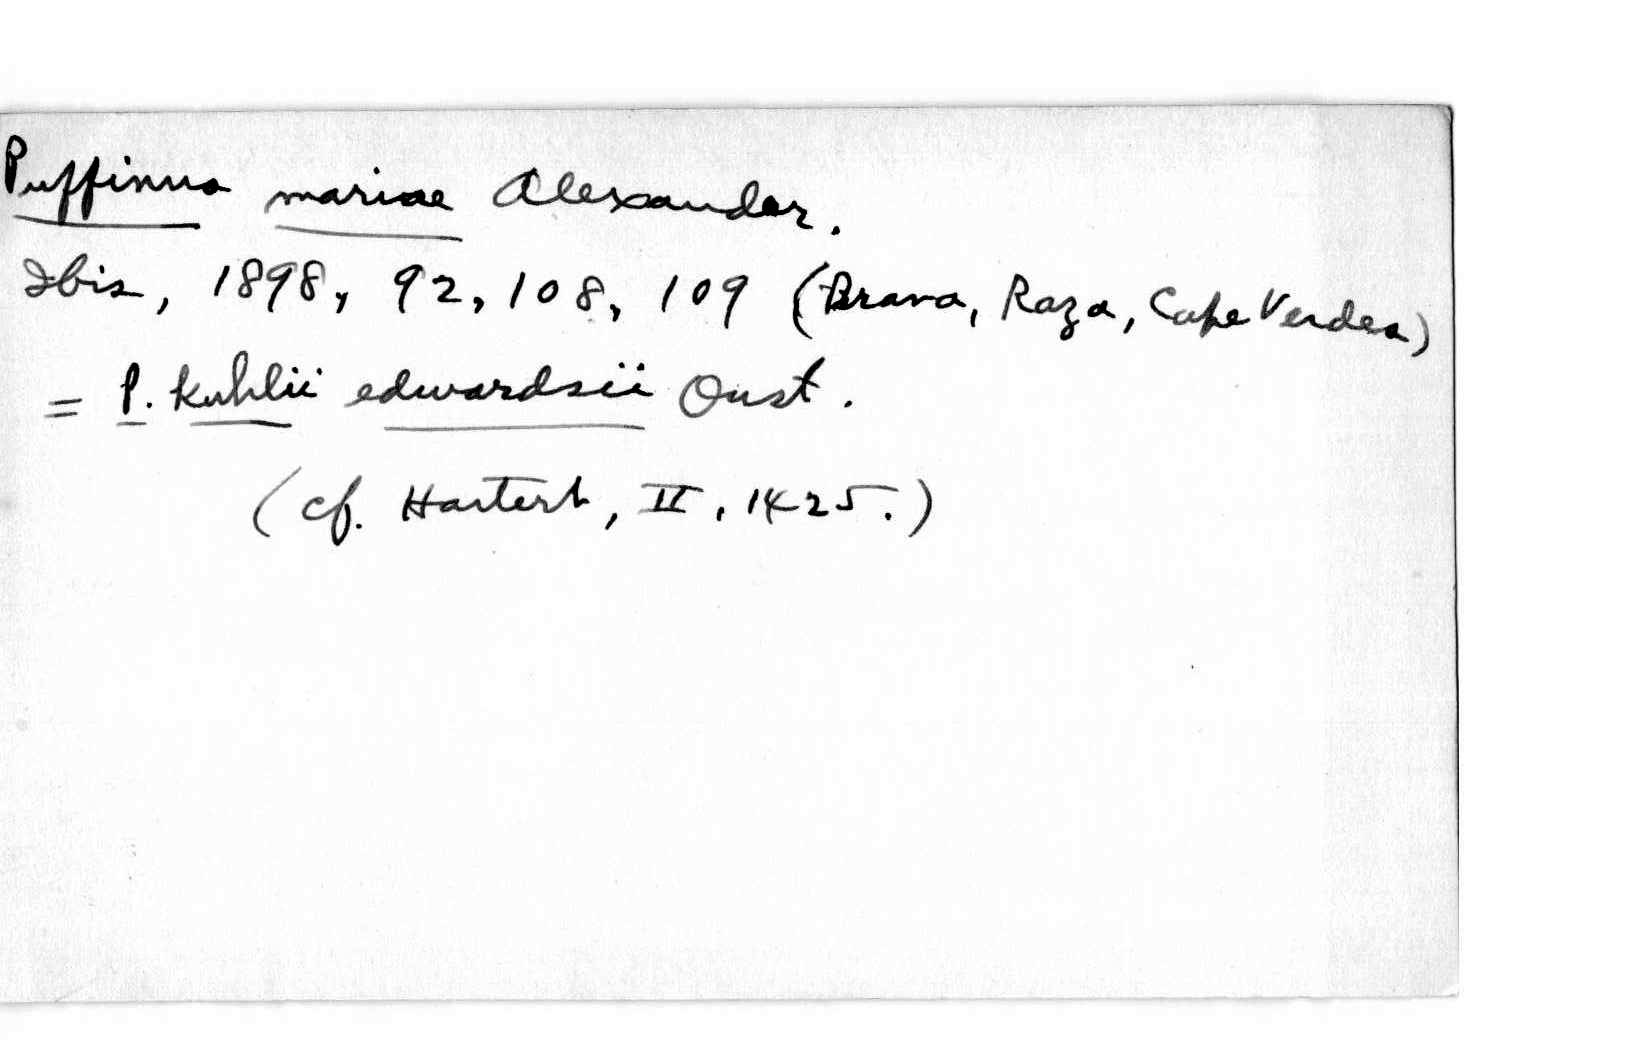 Puffinus mariae Alexander.
Ibis, 1898, 92, 108, 109 (Brava, Raza, Cape Verdes)
= P. kuhlii edwardsii Oust.
(cf. Hartert, II, 1425.)